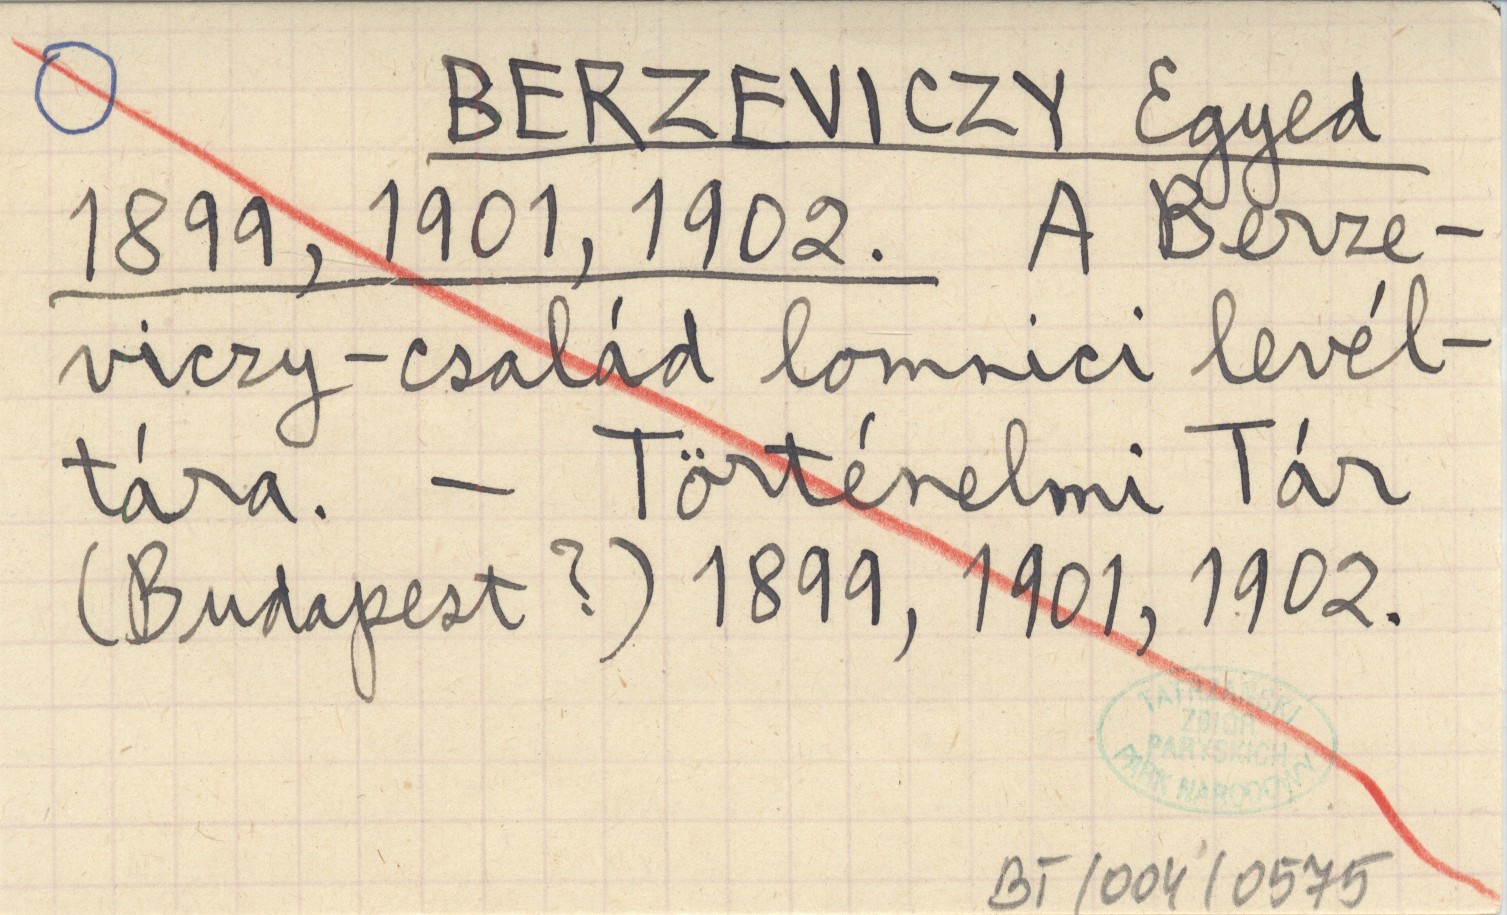 BERZEVICZY Egyed
1899, 1901, 1902. A Berze-
viczy-család lomnici levél-
tára. — Történelmi Tár
(Budapest?) 1899, 1901, 1902.
TATRZAŃSKI
ZBIÓR
PARYSKICH
PARK NARODOWY
BT/004/0575